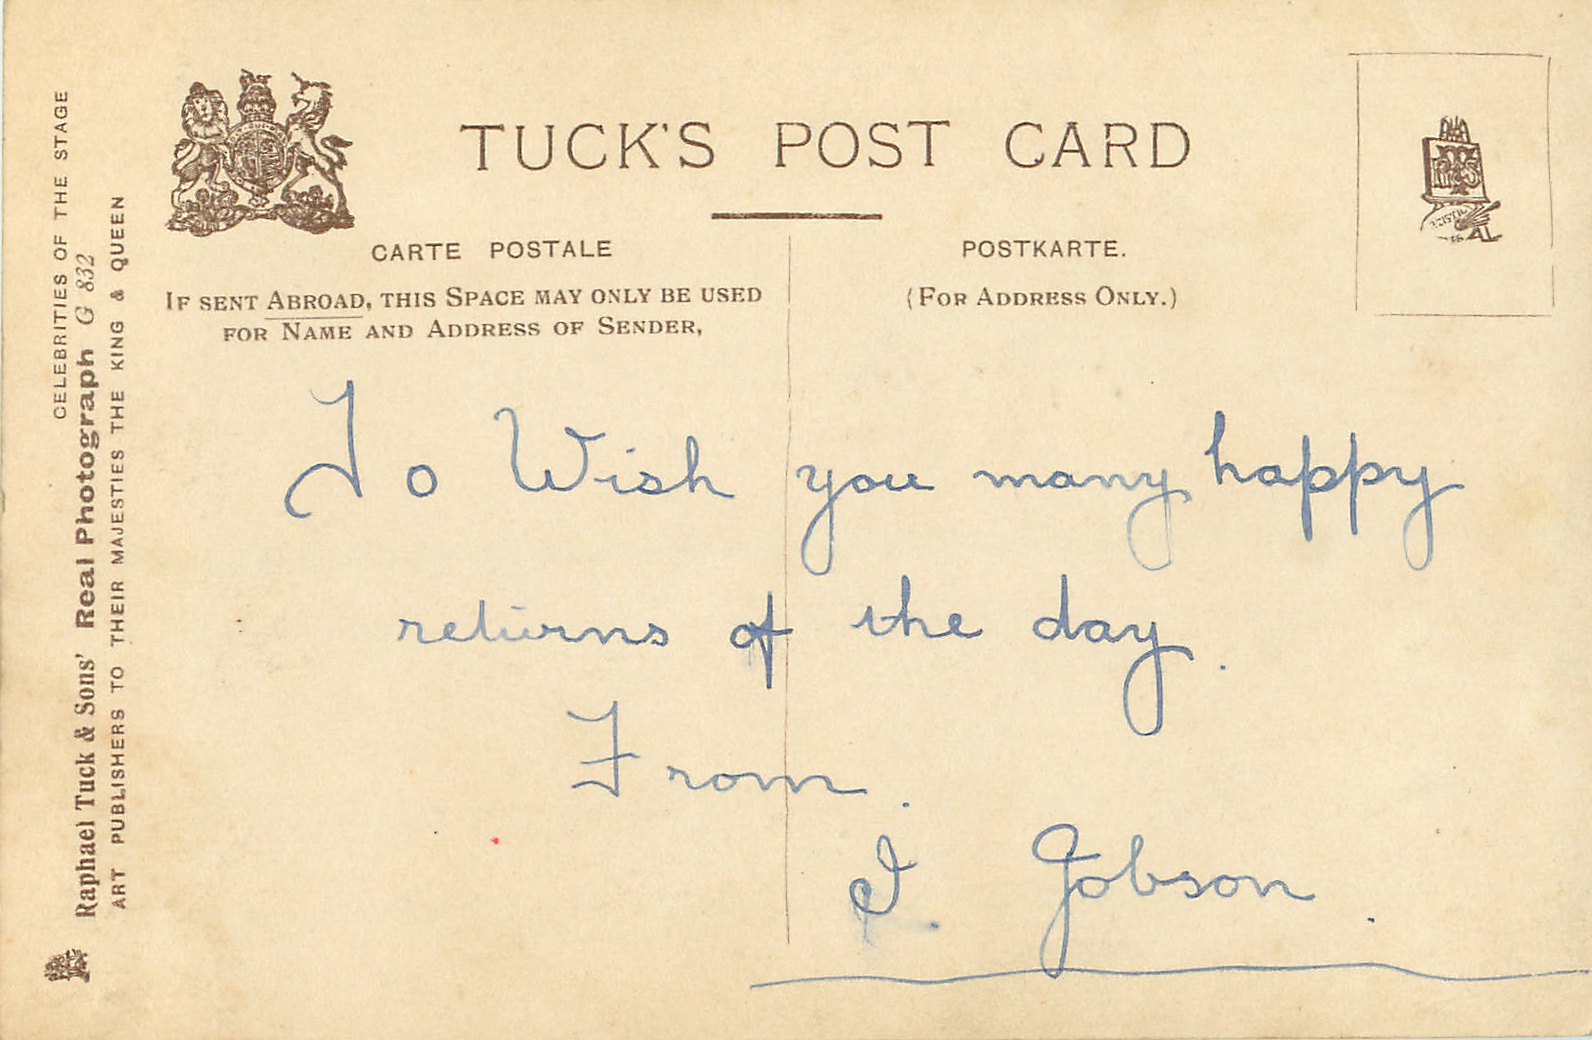 TUCK'S POST CARD
CARTE POSTALE
POSTKARTE.
IF SENT ABROAD, THIS SPACE MAY ONLY BE USED
FOR NAME AND ADDRESS OF SENDER,
(FOR ADDRESS ONLY.)
To Wish you many happy
returns of the day.
From.
I. Jobson.
CELEBRITIES OF THE STAGE
Raphael Tuck & Sons' Real Photograph G 832
ART PUBLISHERS TO THEIR MAJESTIES THE KING & QUEEN